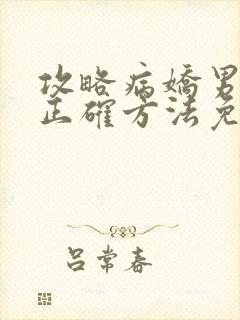 攻略病嬌男
正確方法免
吕常春